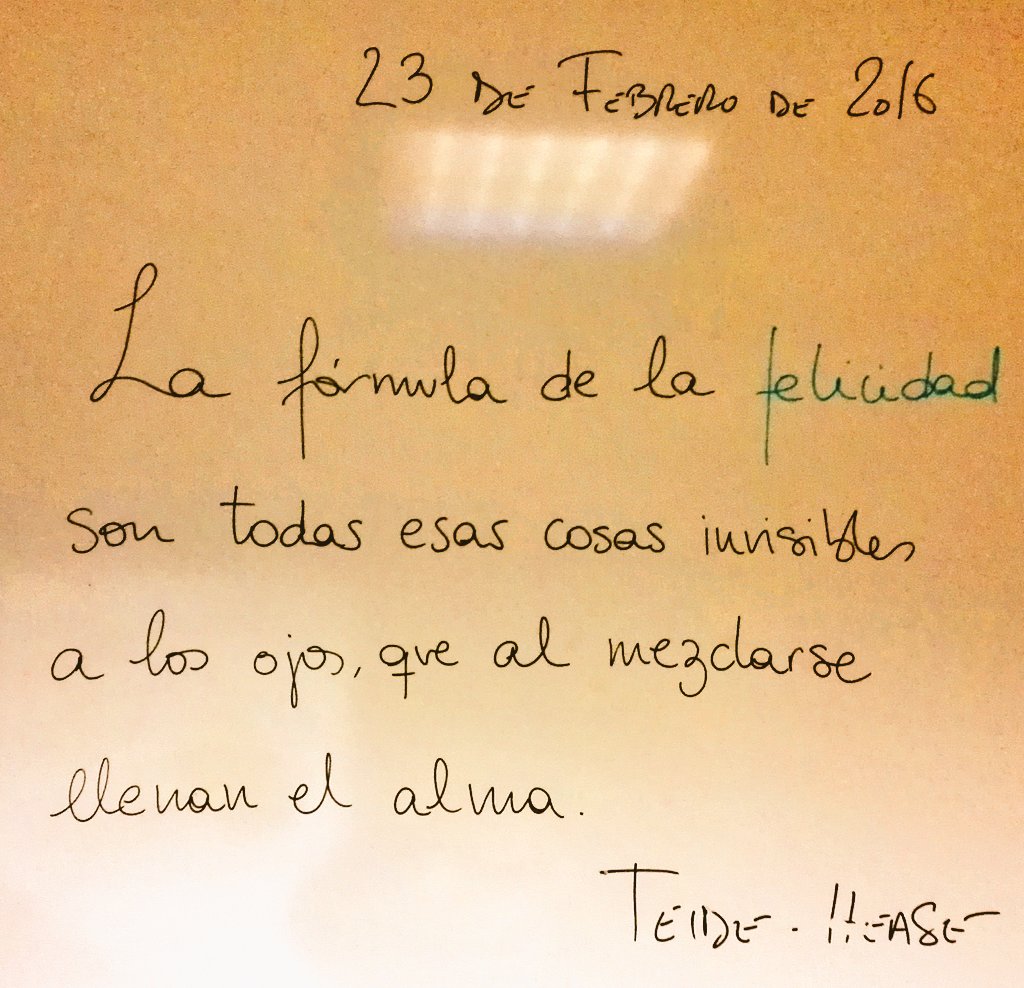 23 DE FEBRERO DE 2016
La fórmula de la felicidad
son todas esas cosas invisibles
a los ojos, que al mezclarse
llenan el alma.